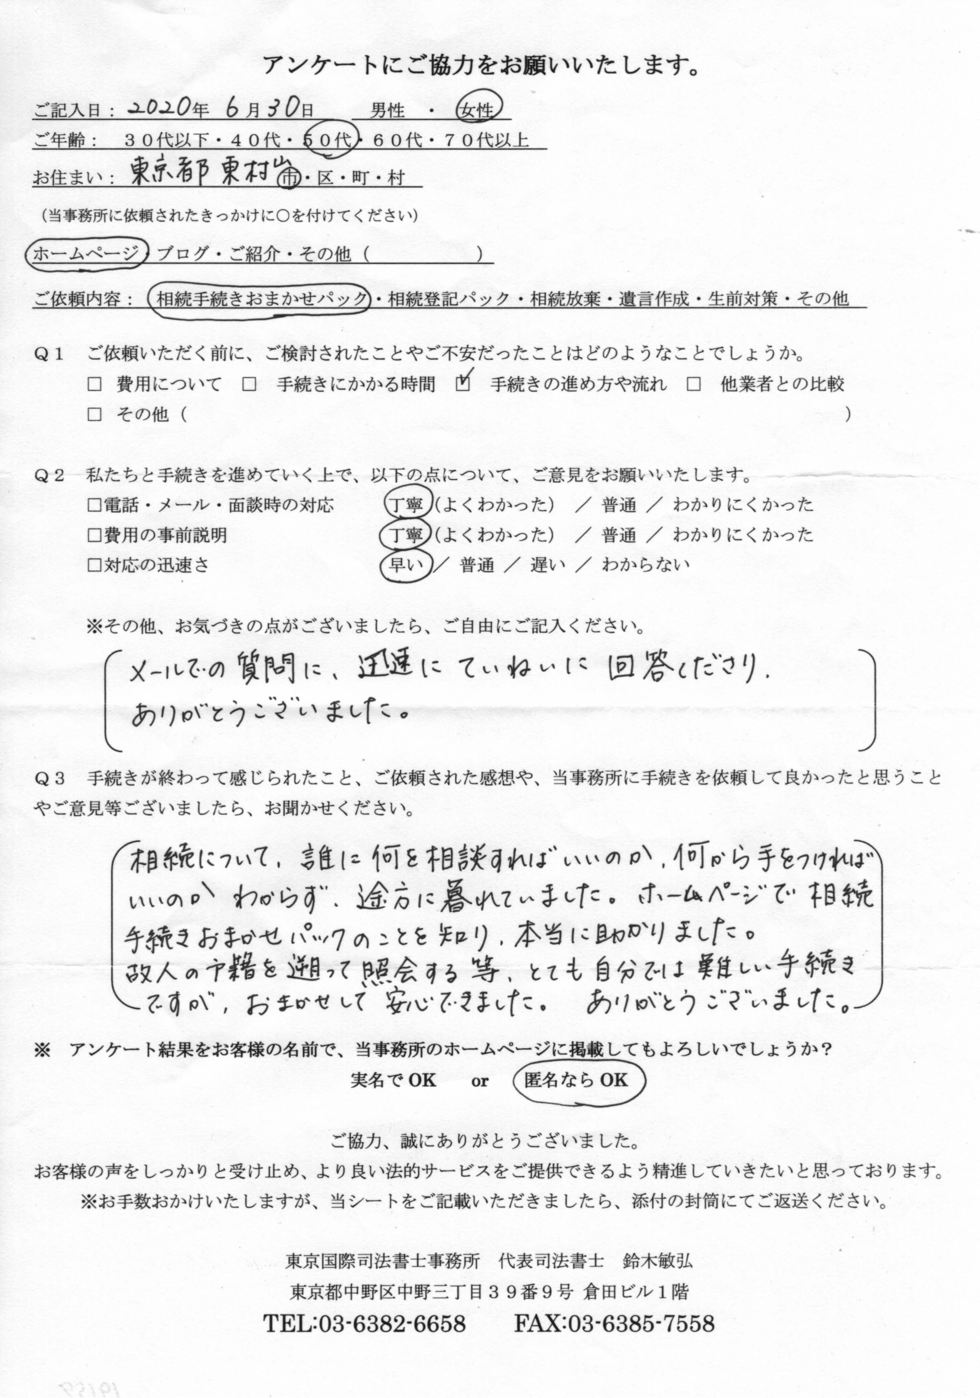 アンケートにご協力をお願いいたします。
ご記入日： 2020年 6月30日 男性 ・ 女性
ご年齢： ３０代以下・４０代・５０代・６０代・７０代以上
お住まい： 東京都 東村山市・区・町・村
（当事務所に依頼されたきっかけに○を付けてください）
ホームページ・ブログ・ご紹介・その他（ ）
ご依頼内容： 相続手続きおまかせパック・相続登記パック・相続放棄・遺言作成・生前対策・その他
Ｑ１ ご依頼いただく前に、ご検討されたことやご不安だったことはどのようなことでしょうか。
□ 費用について □ 手続きにかかる時間 ☑ 手続きの進め方や流れ □ 他業者との比較
□ その他（ ）
Ｑ２ 私たちと手続きを進めていく上で、以下の点について、ご意見をお願いいたします。
□電話・メール・面談時の対応 丁寧（よくわかった） ／ 普通 ／ わかりにくかった
□費用の事前説明 丁寧（よくわかった） ／ 普通 ／ わかりにくかった
□対応の迅速さ 早い ／ 普通 ／ 遅い ／ わからない
※その他、お気づきの点がございましたら、ご自由にご記入ください。
メールでの質問に、迅速にていねいに回答くださり、
ありがとうございました。
Ｑ３ 手続きが終わって感じられたこと、ご依頼された感想や、当事務所に手続きを依頼して良かったと思うこと
やご意見等ございましたら、お聞かせください。
相続について、誰に何を相談すればいいのか、何から手をつければ
いいのか わからず、途方に暮れていました。ホームページで相続
手続きおまかせパックのことを知り、本当に助かりました。
故人の戸籍を遡って照会する等、とても自分では難しい手続き
ですが、おまかせして安心できました。 ありがとうございました。
※ アンケート結果をお客様の名前で、当事務所のホームページに掲載してもよろしいでしょうか？
実名でOK or 匿名ならOK
ご協力、誠にありがとうございました。
お客様の声をしっかりと受け止め、より良い法的サービスをご提供できるよう精進していきたいと思っております。
※お手数おかけいたしますが、当シートをご記載いただきましたら、添付の封筒にてご返送ください。
東京国際司法書士事務所 代表司法書士 鈴木敏弘
東京都中野区中野三丁目３９番９号 倉田ビル１階
TEL:03-6382-6658 FAX:03-6385-7558